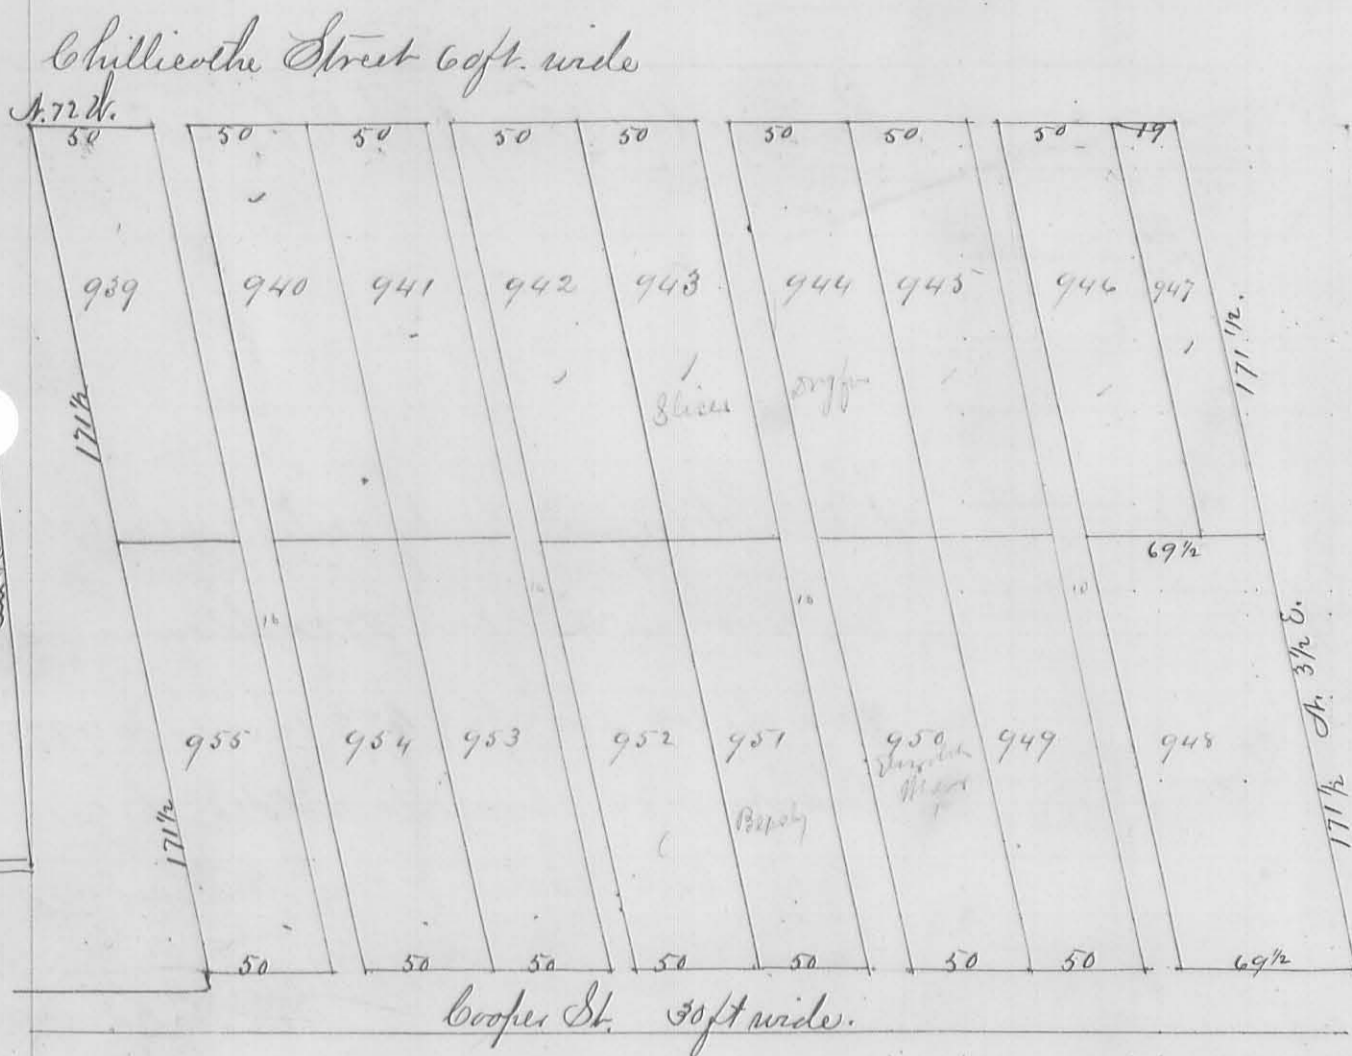 Chillicothe Street 60ft. wide
N. 72 W.
50 50 50 50 50 50 50 50 19
939 940 941 942 943 944 945 946 947
171 1/2 171 1/2.
Slicer
69 1/2
10 10 10 10
171 1/2 N. 3 1/2 E.
955 954 953 952 951 950 949 948
171 1/2
50 50 50 50 50 50 50 69 1/2
Cooper St. 30ft wide.